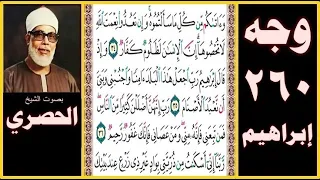 وجه
٢٦٠
إبراهيم
بصوت الشيخ
الحصري
وَءَاتَىٰكُم مِّن كُلِّ مَا سَأَلْتُمُوهُ وَإِن تَعُدُّوا۟ نِعْمَتَ ٱللَّهِ
لَا تُحْصُوهَآ إِنَّ ٱلْإِنسَٰنَ لَظَلُومٌ كَفَّارٌ ٣٤ وَإِذْ
قَالَ إِبْرَٰهِيمُ رَبِّ ٱجْعَلْ هَٰذَا ٱلْبَلَدَ ءَامِنًا وَٱجْنُبْنِى وَبَنِىَّ
أَن نَّعْبُدَ ٱلْأَصْنَامَ ٣٥ رَبِّ إِنَّهُنَّ أَضْلَلْنَ كَثِيرًا مِّنَ ٱلنَّاسِ
فَمَن تَبِعَنِى فَإِنَّهُۥ مِنِّى وَمَنْ عَصَانِى فَإِنَّكَ غَفُورٌ رَّحِيمٌ ٣٦
رَّبَّنَآ إِنِّىٓ أَسْكَنتُ مِن ذُرِّيَّتِى بِوَادٍ غَيْرِ ذِى زَرْعٍ عِندَ بَيْتِكَ